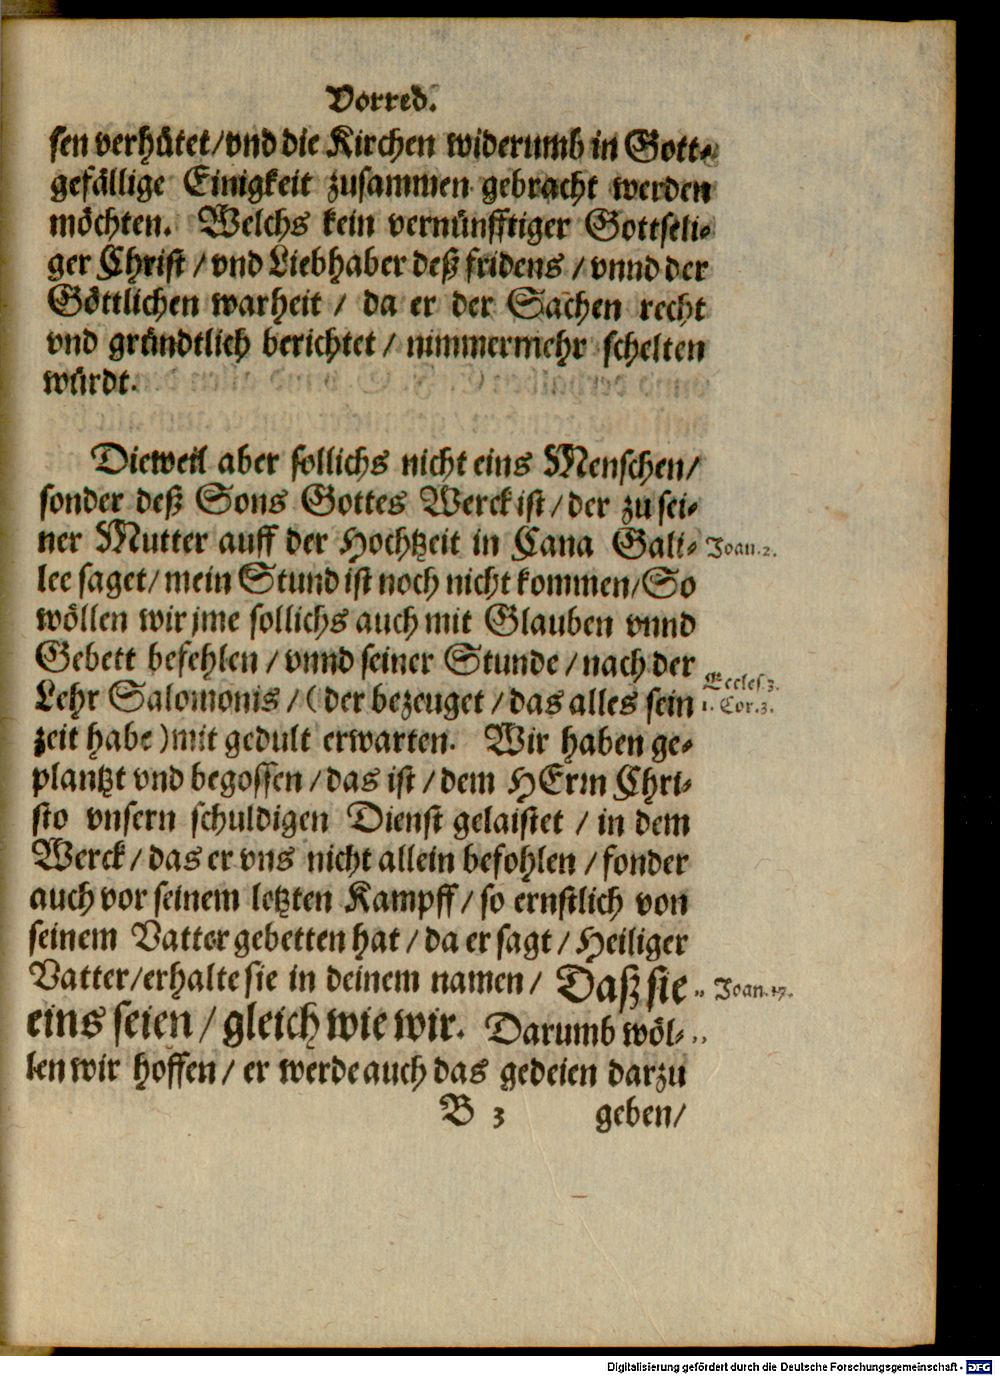 Vorred.
sen verhütet/vnd die Kirchen widerumb in Gott⸗
gefällige Einigkeit zusammen gebracht werden
möchten. Welchs kein vernünfftiger Gottseli⸗
ger Christ / vnd Liebhaber deß fridens / vnnd der
Göttlichen warheit / da er der Sachen recht
vnd gründtlich berichtet / nimmermehr schelten
würdt.
Dieweil aber sollichs nicht eins Menschen/
sonder deß Sons Gottes Werck ist / der zu sei⸗
ner Mutter auff der Hochtzeit in Cana Gali⸗ Joan. 2.
lee saget/ mein Stund ist noch nicht kommen/So
wöllen wir jme sollichs auch mit Glauben vnnd
Gebett befehlen / vnnd seiner Stunde / nach der
Eccles. 3.
Lehr Salomonis / (der bezeuget / das alles sein 1. Cor. 3.
zeit habe) mit gedult erwarten. Wir haben ge⸗
plantzt vnd begossen / das ist / dem HErrn Chri⸗
sto vnsern schuldigen Dienst gelaistet / in dem
Werck / das er vns nicht allein befohlen / sonder
auch vor seinem letzten Kampff / so ernstlich von
seinem Vatter gebetten hat / da er sagt / Heiliger
Vatter/erhalte sie in deinem namen / Daß sie „ Joan. 17.
eins seien / gleich wie wir. Darumb wöl⸗ „
len wir hoffen / er werde auch das gedeien darzu
B 3 geben/
Digitalisierung gefördert durch die Deutsche Forschungsgemeinschaft - DFG